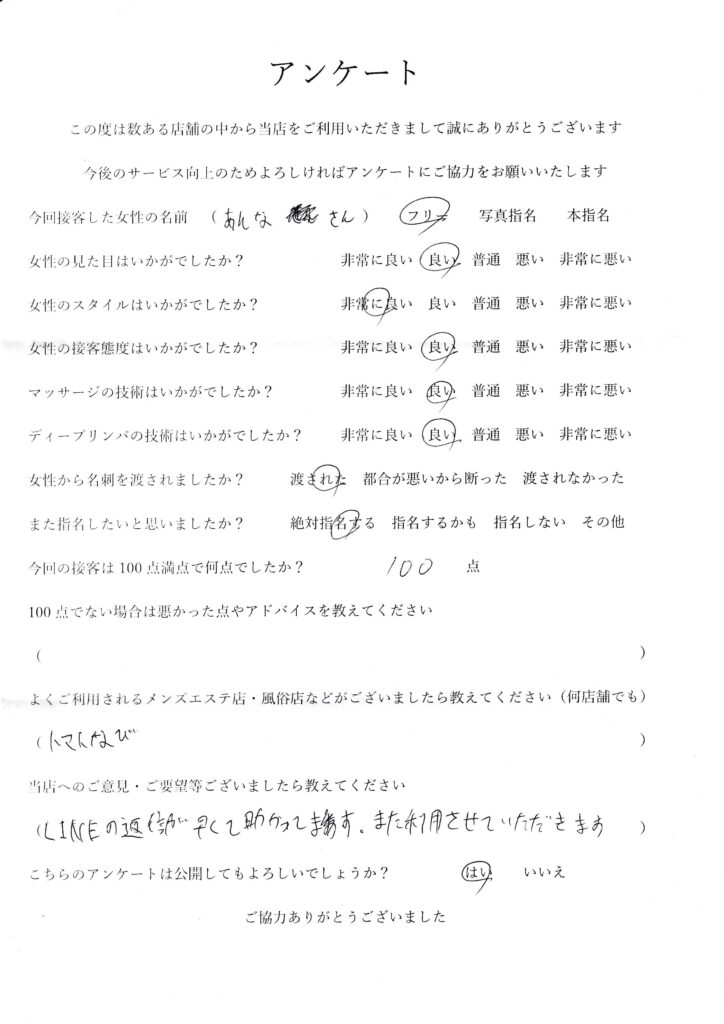 アンケート
この度は数ある店舗の中から当店をご利用いただきまして誠にありがとうございます
今後のサービス向上のためよろしければアンケートにご協力をお願いいたします
今回接客した女性の名前 （あんな さん） フリー 写真指名 本指名
女性の見た目はいかがでしたか？ 非常に良い 良い 普通 悪い 非常に悪い
女性のスタイルはいかがでしたか？ 非常に良い 良い 普通 悪い 非常に悪い
女性の接客態度はいかがでしたか？ 非常に良い 良い 普通 悪い 非常に悪い
マッサージの技術はいかがでしたか？ 非常に良い 良い 普通 悪い 非常に悪い
ディープリンパの技術はいかがでしたか？ 非常に良い 良い 普通 悪い 非常に悪い
女性から名刺を渡されましたか？ 渡された 都合が悪いから断った 渡されなかった
また指名したいと思いましたか？ 絶対指名する 指名するかも 指名しない その他
今回の接客は100点満点で何点でしたか？ 100 点
100点でない場合は悪かった点やアドバイスを教えてください
（ ）
よくご利用されるメンズエステ店・風俗店などがございましたら教えてください（何店舗でも）
（トマトなび ）
当店へのご意見・ご要望等ございましたら教えてください
（LINEの返信が早くて助かってます。また利用させていただきます ）
こちらのアンケートは公開してもよろしいでしょうか？ はい いいえ
ご協力ありがとうございました